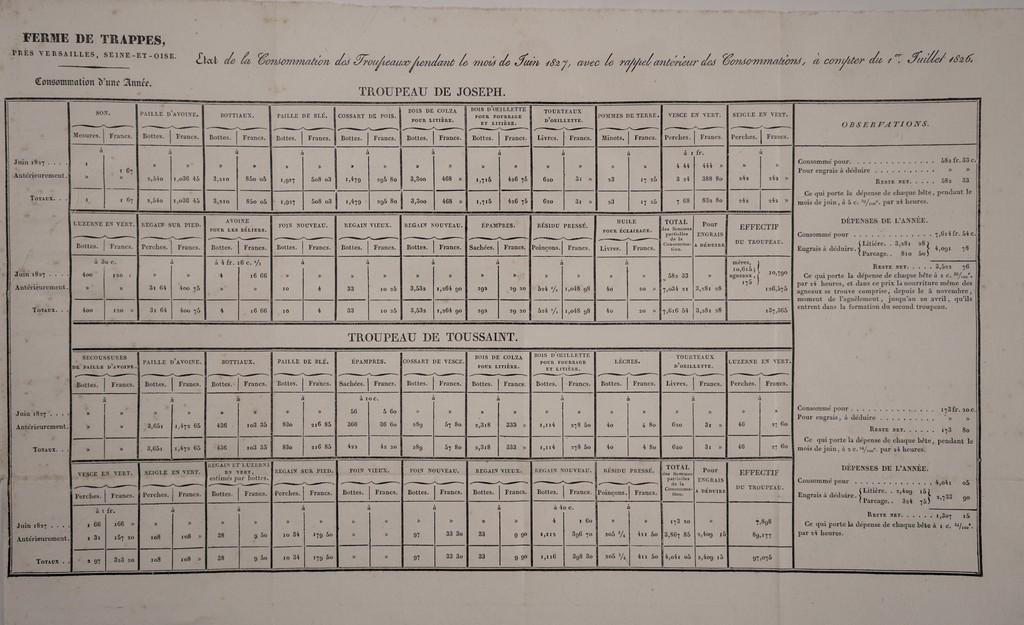 FERME DE TRAPPES,
PRÈS VERSAILLES, SEINE-ET-OISE.
État de la Consommation des Troupeaux pendant le mois de Juin 1827, avec le rappel antérieur des Consommations, à compter du 1er Juillet 1826.
Consommation d'une Année.
TROUPEAU DE JOSEPH.
SON. PAILLE D'AVOINE. BOTTIAUX. PAILLE DE BLÉ. COSSART DE POIS. BOIS DE COLZA POUR LITIÈRE. BOIS D'ŒILLETTE POUR FOURRAGE ET LITIÈRE. TOURTEAUX D'OEILLETTE. POMMES DE TERRE. VESCE EN VERT. SEIGLE EN VERT. OBSERVATIONS.
Mesures. Francs. Bottes. Francs. Bottes. Francs. Bottes. Francs. Bottes. Francs. Bottes. Francs. Bottes. Francs. Livres. Francs. Minots. Francs. Perches. Francs. Perches. Francs.
à à à à à à à à à à 1 fr. à
Juin 1827 . . . . 1 1 67 » » » » » » » » » » » » » » » » 4 44 444 » » »
Antérieurement. 2,540 1,036 45 3,210 850 05 1,927 508 03 1,479 295 80 3,300 468 » 1,715 426 75 620 31 » 23 17 25 3 24 388 80 242 242 »
TOTAUX. . . 1 1 67 2,540 1,036 45 3,210 850 05 1,927 508 03 1,479 295 80 3,300 468 » 1,715 426 75 620 31 » 23 17 25 7 68 832 80 242 242 »
Consommé pour. . . . 582 fr. 33 c.
Pour engrais à déduire . . . . » »
RESTE NET. . . . . 582 33
Ce qui porte la dépense de chaque bête, pendant le
par 24 heures.
LUZERNE EN VERT. REGAIN SUR PIED. AVOINE POUR LES BÉLIERS. FOIN NOUVEAU. REGAIN VIEUX. REGAIN NOUVEAU. ÉPAMPRES. RÉSIDU PRESSÉ. HUILE POUR ÉCLAIRAGE. TOTAL des Sommes partielles de la Consommation. Pour ENGRAIS A DÉDUIRE. EFFECTIF DU TROUPEAU.
Bottes. Francs. Perches. Francs. Bottes. Francs. Bottes. Francs. Bottes. Francs. Bottes. Francs. Sachées. Francs. Poinçons. Francs. Livres. Francs.
à 30 c. à à 4 fr. 16 c. à à à à à à
Juin 1827 . . . . 400 120 » » 4 16 66 » » » » » » » » » » » » 582 33 » mères, 10,615 agneaux, 175 10,790
Antérieurement. 31 64 400 75 10 4 33 10 25 3,532 1,264 90 292 29 20 524 1,048 98 40 20 » 7,034 21 3,281 28 126,575
TOTAUX. . . 400 120 » 31 64 400 75 4 16 66 10 4 33 10 25 3,532 1,264 90 292 29 20 524 1,048 98 40 20 » 7,616 54 3,281 28 137,365
DÉPENSES DE L'ANNÉE.
Consommé pour . . . . 7,614 fr. 54 c.
Engrais à déduire. Litière. . 3,281 28 Parcage. . 810 50 4,091 78
RESTE NET. . . . . 3,522 76
Ce qui porte la dépense de chaque bête à 2 c.
par 24 heures, et dans ce prix la nourriture même des
agneaux se trouve comprise, depuis le 5 novembre,
moment de l'agnèlement, jusqu'au 20 avril, qu'ils
entrent dans la formation du second troupeau.
TROUPEAU DE TOUSSAINT.
SECOUSSURES DE PAILLE D'AVOINE. PAILLE D'AVOINE. BOTTIAUX. PAILLE DE BLÉ. ÉPAMPRES. COSSART DE VESCE. BOIS DE COLZA POUR LITIÈRE. BOIS D'ŒILLETTE POUR FOURRAGE ET LITIÈRE. LÈCHES. TOURTEAUX D'OEILLETTE. LUZERNE EN VERT.
Bottes. Francs. Bottes. Francs. Bottes. Francs. Bottes. Francs. Sachées. Francs. Bottes. Francs. Bottes. Francs. Bottes. Francs. Bottes. Francs. Livres. Francs. Perches. Francs.
à à à à à 10 c. à à à à à à
Juin 1827 . . . . » » » » » » » » 56 5 60 » » » » » » » » » » » »
Antérieurement. » » 3,651 1,472 65 436 103 35 830 216 85 366 36 60 289 57 80 2,318 333 » 1,114 278 50 40 4 80 620 31 » 46 27 60
TOTAUX . . » » 3,651 1,472 65 436 103 35 830 216 85 422 42 20 289 57 80 2,318 333 » 1,114 278 50 40 4 80 620 31 » 46 27 60
Consommé pour . . . . 173 fr. 20 c.
Pour engrais, à déduire . . . . »
RESTE NET. . . . . 173 80
Ce qui porte la dépense de chaque bête, pendant le
par 24 heures.
VESCE EN VERT. SEIGLE EN VERT. REGAIN ET LUZERNE EN VERT, estimés par bottes. REGAIN SUR PIED. FOIN VIEUX. FOIN NOUVEAU. REGAIN VIEUX. REGAIN NOUVEAU. RÉSIDU PRESSÉ. TOTAL des Sommes partielles de la Consommation. Pour ENGRAIS A DÉDUIRE. EFFECTIF DU TROUPEAU.
Perches. Francs. Perches. Francs. Bottes. Francs. Perches. Francs. Bottes. Francs. Bottes. Francs. Bottes. Francs. Bottes. Francs. Poinçons. Francs.
à 1 fr. à à à à à à à 40 c. à
Juin 1827 . . . . 1 66 166 » » » » » » » » » » » » » 4 1 60 » » 173 20 » 7,898
Antérieurement. 1 31 157 20 108 108 » 28 9 50 10 34 179 50 97 33 30 33 9 90 1,112 396 70 205 411 50 3,867 85 2,409 15 89,177
TOTAUX . . 2 97 323 20 108 108 » 28 9 50 10 34 179 50 97 33 30 33 9 90 1,116 398 30 205 411 50 4,041 05 2,409 15 97,075
DÉPENSES DE L'ANNÉE.
Consommé pour . . . . 4,041 05
Engrais à déduire. Litière. . 2,409 15 Parcage. . 324 75 2,733 90
RESTE NET. . . . . 1,307 15
Ce qui porte la dépense de chaque bête à 1 c.
par 24 heures.